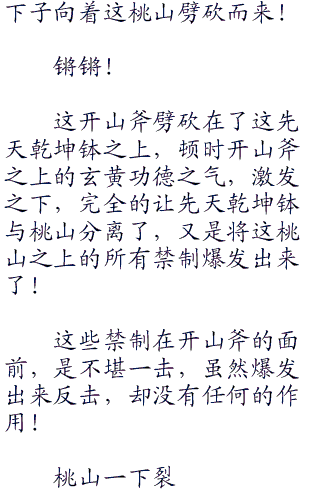 下子向着这桃山劈砍而来！
锵锵！
这开山斧劈砍在了这先
天乾坤钵之上，顿时开山斧
之上的玄黄功德之气，激发
之下，完全的让先天乾坤钵
与桃山分离了，又是将这桃
山之上的所有禁制爆发出来
了！
这些禁制在开山斧的面
前，是不堪一击，虽然爆发
出来反击，却没有任何的作
用！
桃山一下裂